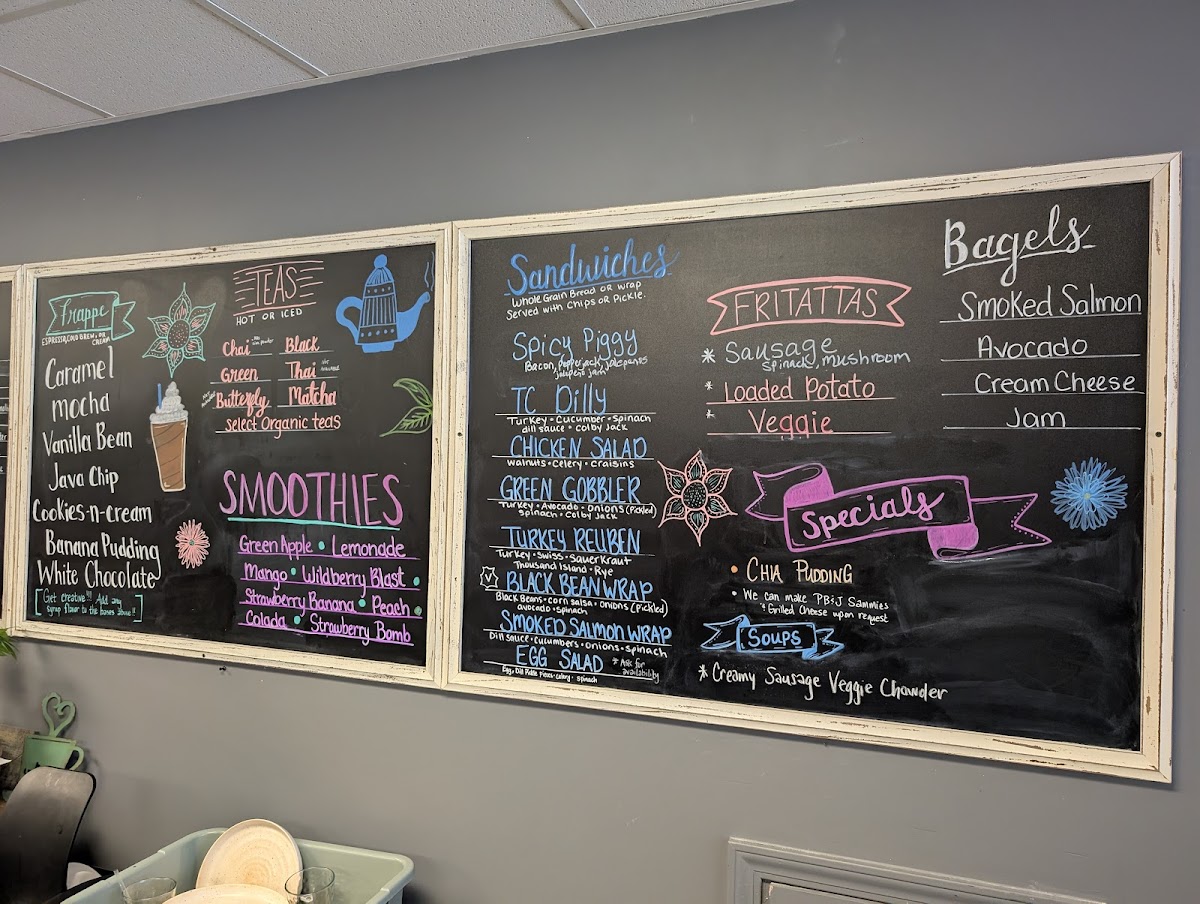 Frappe
ESPRESSO, COLD BREW, OR
CREAM
Caramel
mocha
Vanilla Bean
Java Chip
Cookies-n-cream
Banana Pudding
White Chocolate
Get creative!!! Add any
syrup flavor to the flavors above!!
TEAS
HOT OR ICED
Chai Black
Green Thai
Butterfly Matcha
select Organic teas
SMOOTHIES
Green Apple • Lemonade
Mango • Wildberry Blast •
Strawberry Banana • Peach •
Colada • Strawberry Bomb
Sandwiches
Whole Grain Bread or wrap
Served with Chips or Pickle.
Spicy Piggy
Bacon, Pepperjack, Jalapenos
Jalapeno jam
TC Dilly
Turkey • Cucumber • Spinach
dill sauce • Colby Jack
CHICKEN SALAD
walnuts • Celery • Craisins
GREEN GOBBLER
Turkey • Avocado • Onions (Pickled)
Spinach • Colby Jack
TURKEY REUBEN
Turkey • Swiss • Sauerkraut
Thousand Island • Rye
BLACK BEAN WRAP
Black Beans • corn salsa • onions (pickled)
avocado • spinach
SMOKED SALMON WRAP
Dill sauce • cucumbers • onions • spinach
EGG SALAD
* Ask for
availability
Egg, Dill Pickle Pieces • celery • spinach
FRITATTAS
* Sausage
spinach, mushroom
* Loaded Potato
* Veggie
Bagels
Smoked Salmon
Avocado
Cream Cheese
Jam
Specials
• CHIA PUDDING
• We can make PB&J Sammies
& Grilled Cheese upon request
Soups
* Creamy Sausage Veggie Chowder